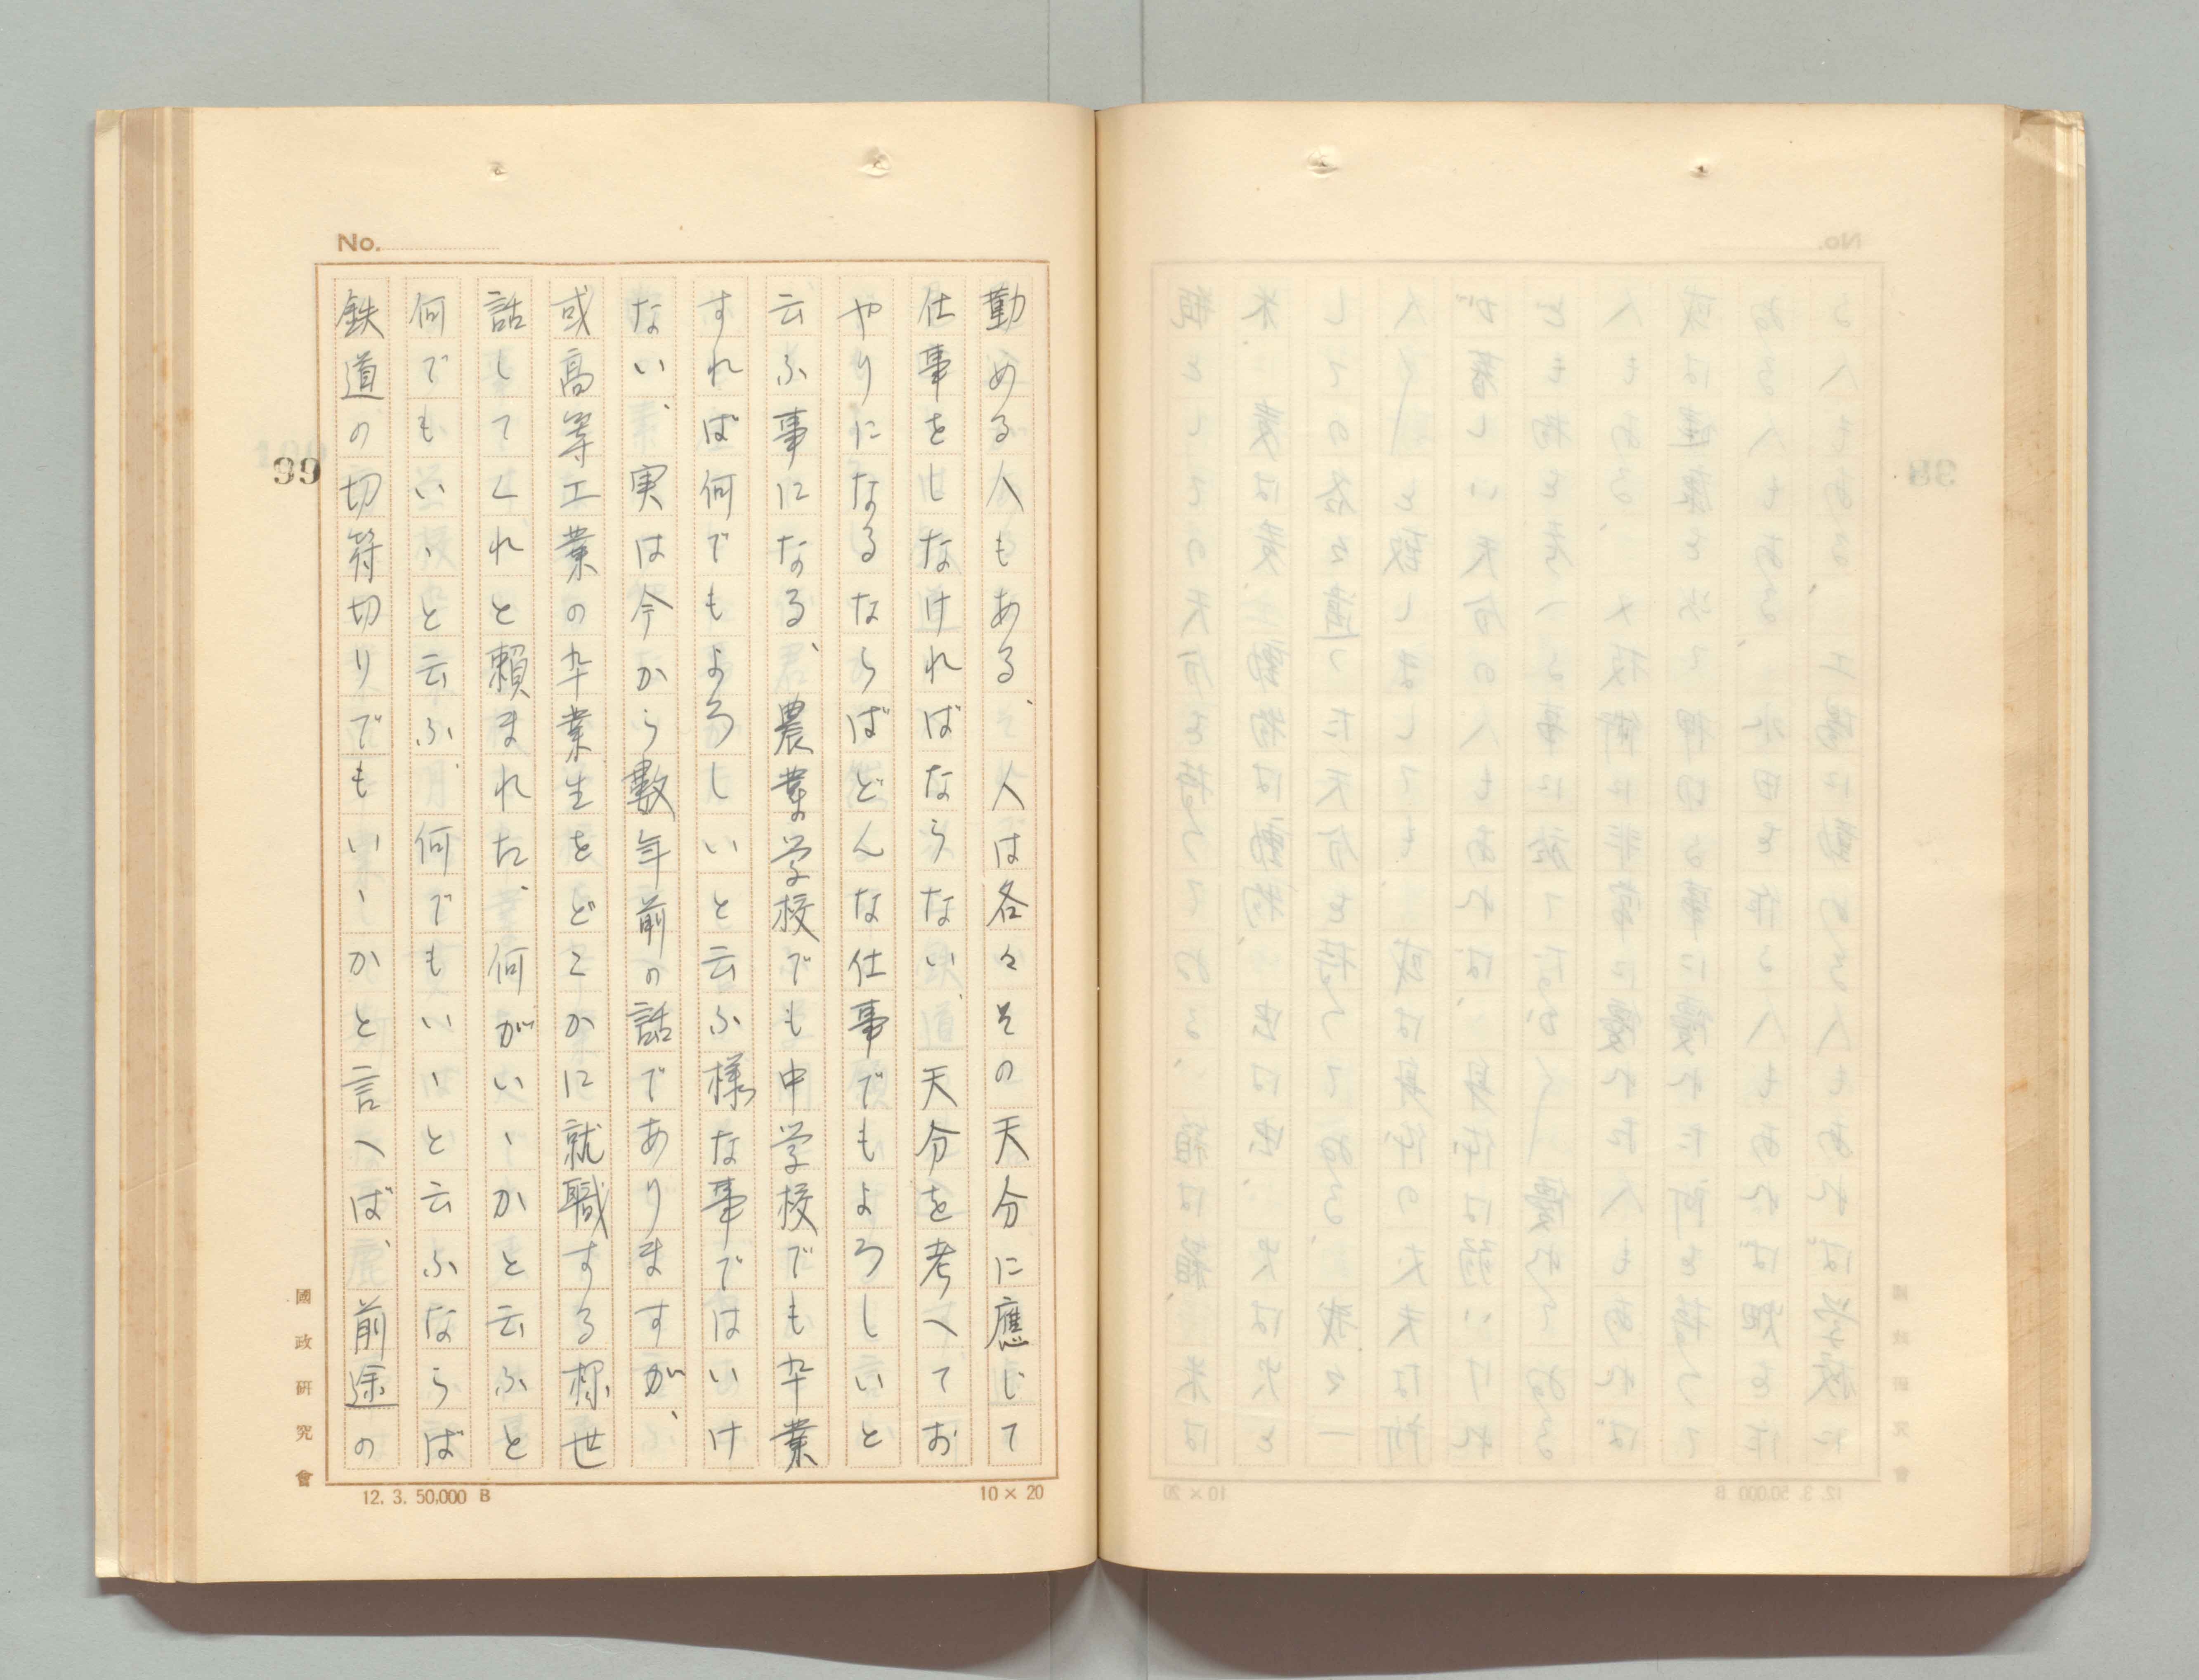 No.
勤める人もある、人は各々その天分に應じて
仕事をしなければならない、天分を考へてお
やりになるならばどんな仕事でもよろしいと
云ふ事になる、農業学校でも中学校でも卆業
すれば何でもよろしいと云ふ様な事ではいけ
ない、実は今から数年前の話でありますが、
或高等工業の卆業生をどこかに就職する様世
話してくれと頼まれた、何がいゝかと云ふと
何でもいゝと云ふ、何でもいゝと云ふならば
鉄道の切符切りでもいゝかと言へば、前途の
99
國政研究會
12. 3. 50,000 B
10×20